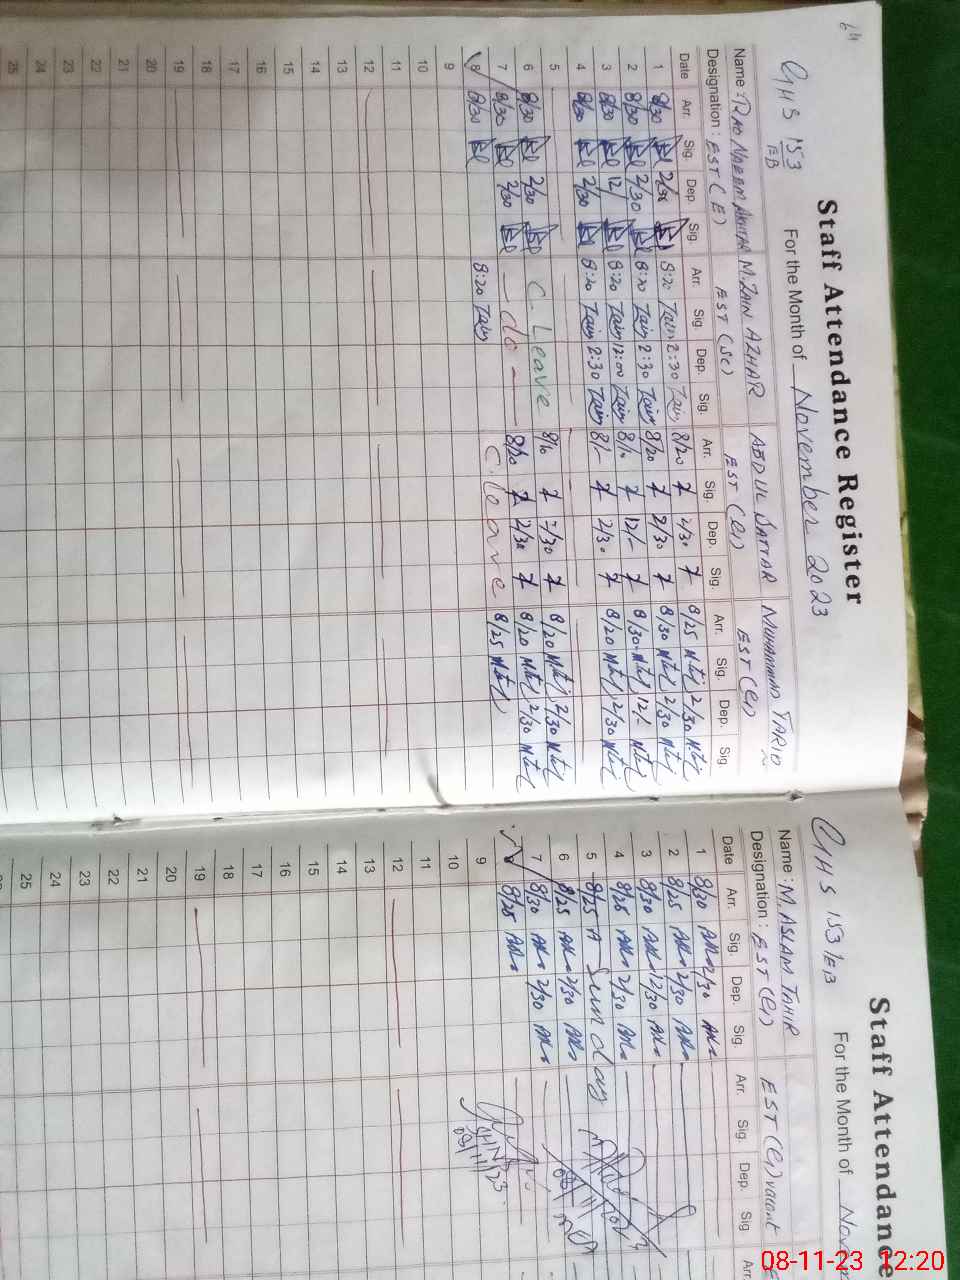 64
GHS 153/EB
Staff Attendance Register
For the Month of November 2023
Name : RAO NAEEM AKHTAR M.ZAIN AZHAR ABDUL SATTAR MUHAMMAD TARIQ
Designation : EST (E) EST (SC) EST (G) EST (G)
Date Arr. Sig. Dep. Sig. Arr. Sig. Dep. Sig. Arr. Sig. Dep. Sig. Arr. Sig. Dep. Sig
1 8/30 2/30 8:20 Zain 2:30 Zain 8/20 2/30 8/25 2/30
2 8/30 2/30 8:20 Zain 2:30 Zain 8/20 2/30 8/30 2/30
3 8/30 12/ 8:20 Zain 12:00 Zain 8/10 12/- 8/30 12/-
4 8/30 2/30 8:20 Zain 2:30 Zain 8/- 2/30 8/20 2/30
5
6 8/30 2/30 C. Leave 8/10 2/30 8/20 2/30
7 8/30 2/30 — do — 8/20 2/30 8/20 2/30
8 8/30 8:20 Zain C. leave 8/25
9
10
11
12
13
14
15
16
17
18
19
20
21
22
23
24
25
GHS 153/EB
Staff Attendance
For the Month of Novem
Name : M. ASLAM TAHIR
Designation : EST (G) EST (G) vacant
Date Arr. Sig. Dep. Sig. Arr. Sig. Dep. Sig Arr.
1 8/30 2/30
2 8/25 2/30
3 8/30 12/30
4 8/25 2/30
5 8/25 Sunday
6 8/25 2/30
7 8/30 2/30
8/25
9
10
11
12
13
14
15
16
17
18
19
20
21
22
23
24
25
08/11/23
08-11-23 12:20